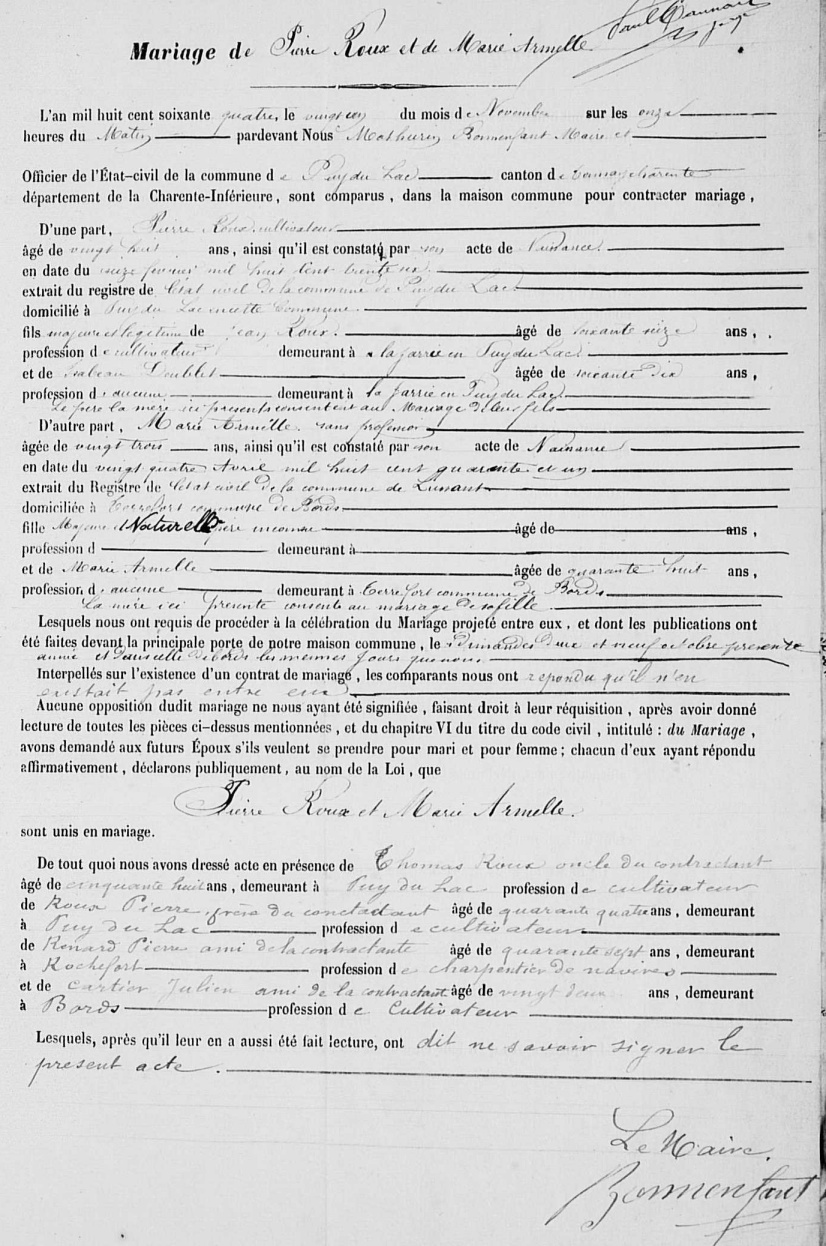 Mariage de Pierre Roux et de Marie Armelle
L'an mil huit cent soixante quatre, le vingt du mois de Novembre sur les onze
heures du Matin pardevant Nous Mathurin Bonnenfant Maire et
Officier de l'État-civil de la commune de Puy du Lac canton de Tonnay charente
département de la Charente-Inférieure, sont comparus, dans la maison commune pour contracter mariage,
D'une part, Pierre Roux cultivateur
âgé de vingt huit ans, ainsi qu'il est constaté par son acte de Naissance
en date du seize fevrier mil huit cent trente six
extrait du registre de l'état civil de la commune de Puy du Lac
domicilié à Puy du Lac en cette Commune
fils majeur et legitime de Jean Roux âgé de soixante seize ans,
profession de cultivateur demeurant à la Jarrie en Puy du Lac
et de Isabeau Doublet âgée de soixante dix ans,
profession d'aucune demeurant à la Jarrie en Puy du Lac
Le pere la mere ici presents consentent au Mariage de leur fils
D'autre part, Marie Armelle sans profession
âgée de vingt trois ans, ainsi qu'il est constaté par son acte de Naissance
en date du vingt quatre Avril mil huit cent quarante et un
extrait du Registre de l'état civil de la commune de Lussant
domiciliée à Terrefort commune de Bords
fille Majeure et Naturelle père inconnu âgé de ans,
profession d demeurant à
et de Marie Armelle âgée de quarante huit ans,
profession d'aucune demeurant à Terrefort commune de Bords
La mère ici presente consent au mariage de sa fille
Lesquels nous ont requis de procéder à la célébration du Mariage projeté entre eux, et dont les publications ont
été faites devant la principale porte de notre maison commune, les dimanches deux et neuf octobre presente
année et d'au celle de Bords les memes jours que nous
Interpellés sur l'existence d'un contrat de mariage, les comparants nous ont repondu qu'il n'en
existait pas entre eux
Aucune opposition dudit mariage ne nous ayant été signifiée, faisant droit à leur réquisition, après avoir donné
lecture de toutes les pièces ci-dessus mentionnées, et du chapitre VI du titre du code civil, intitulé : du Mariage,
avons demandé aux futurs Époux s'ils veulent se prendre pour mari et pour femme ; chacun d'eux ayant répondu
affirmativement, déclarons publiquement, au nom de la Loi, que
Pierre Roux et Marie Armelle.
sont unis en mariage.
De tout quoi nous avons dressé acte en présence de Thomas Roux oncle du contractant
âgé de cinquante huit ans, demeurant à Puy du Lac profession de cultivateur
de Roux Pierre frère du contractant âgé de quarante quatre ans, demeurant
à Puy du Lac profession de cultivateur
de Renard Pierre ami de la contractante âgé de quarante sept ans, demeurant
à Rochefort profession de charpentier de navires
et de Cartier Julien ami de la contractant âgé de vingt deux ans, demeurant
à Bords profession de Cultivateur
Lesquels, après qu'il leur en a aussi été fait lecture, ont dit ne savoir signer le
present acte.
Le Maire.
Bonnenfant